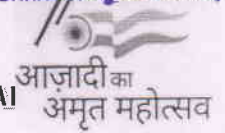 आज़ादी का
AI अमृत महोत्सव